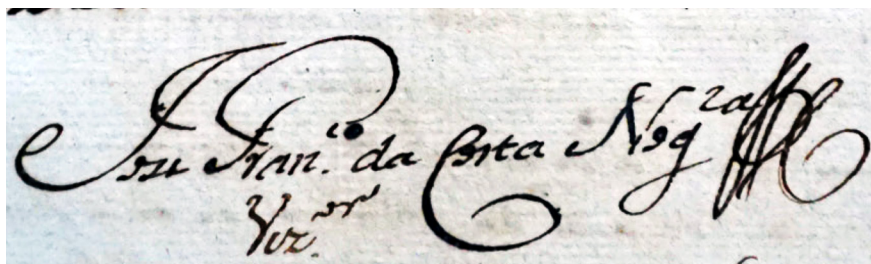 Joze Fran.co da Costa Nog.ra
Ver.or